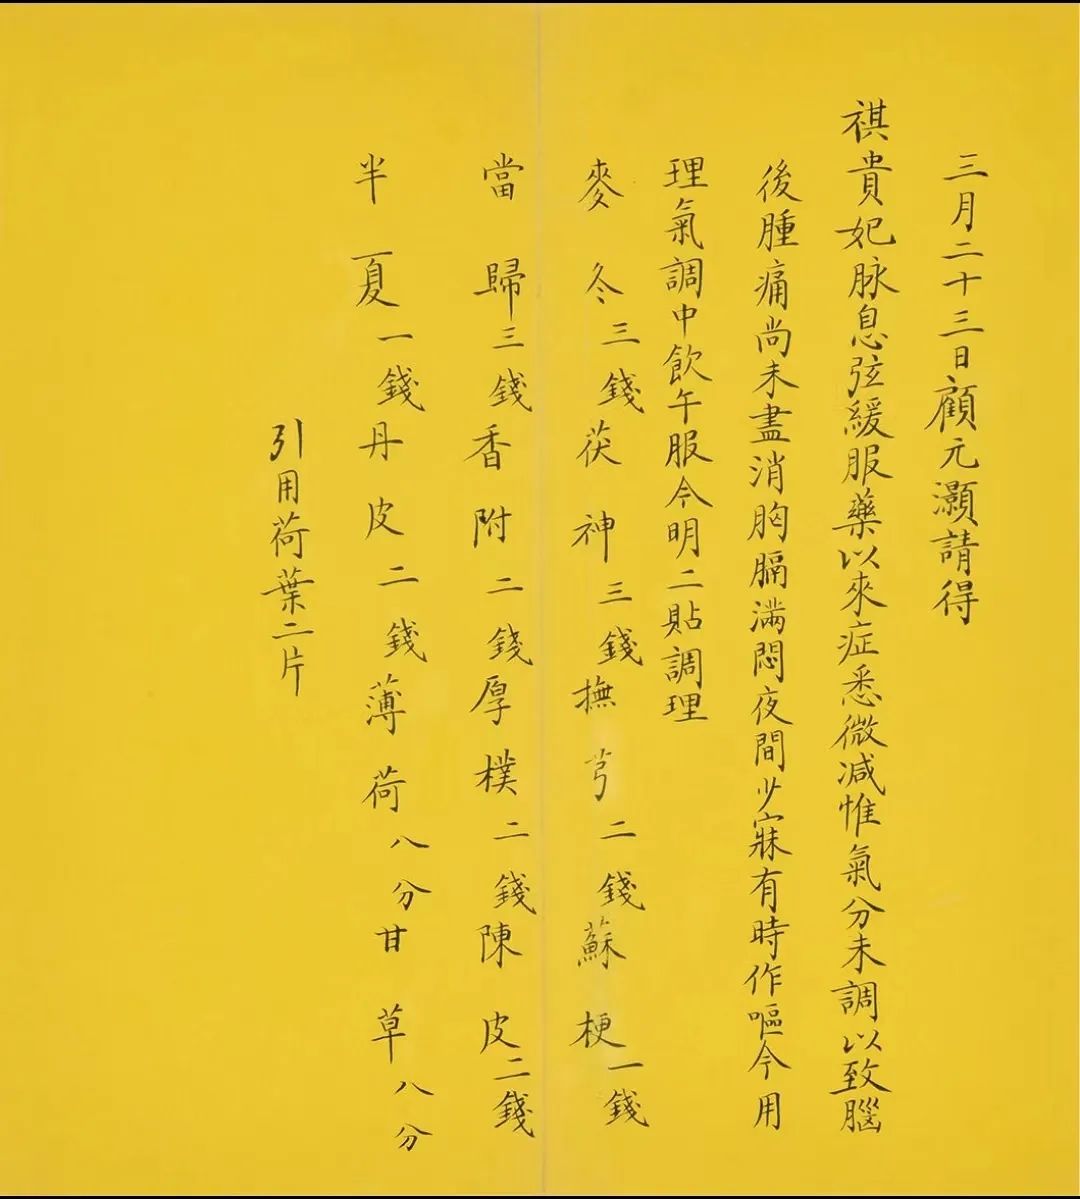 三月二十三日顧元灝請得
祺貴妃脉息弦緩服藥以來症悉微减惟氣分未調以致腦
後腫痛尚未盡消胸膈滿悶夜間少寐有時作嘔今用
理氣調中飲午服今明二貼調理
麥冬三錢茯神三錢撫芎二錢蘇梗一錢
當歸三錢香附二錢厚樸二錢陳皮二錢
半夏一錢丹皮二錢薄荷八分甘草八分
引用荷葉二片